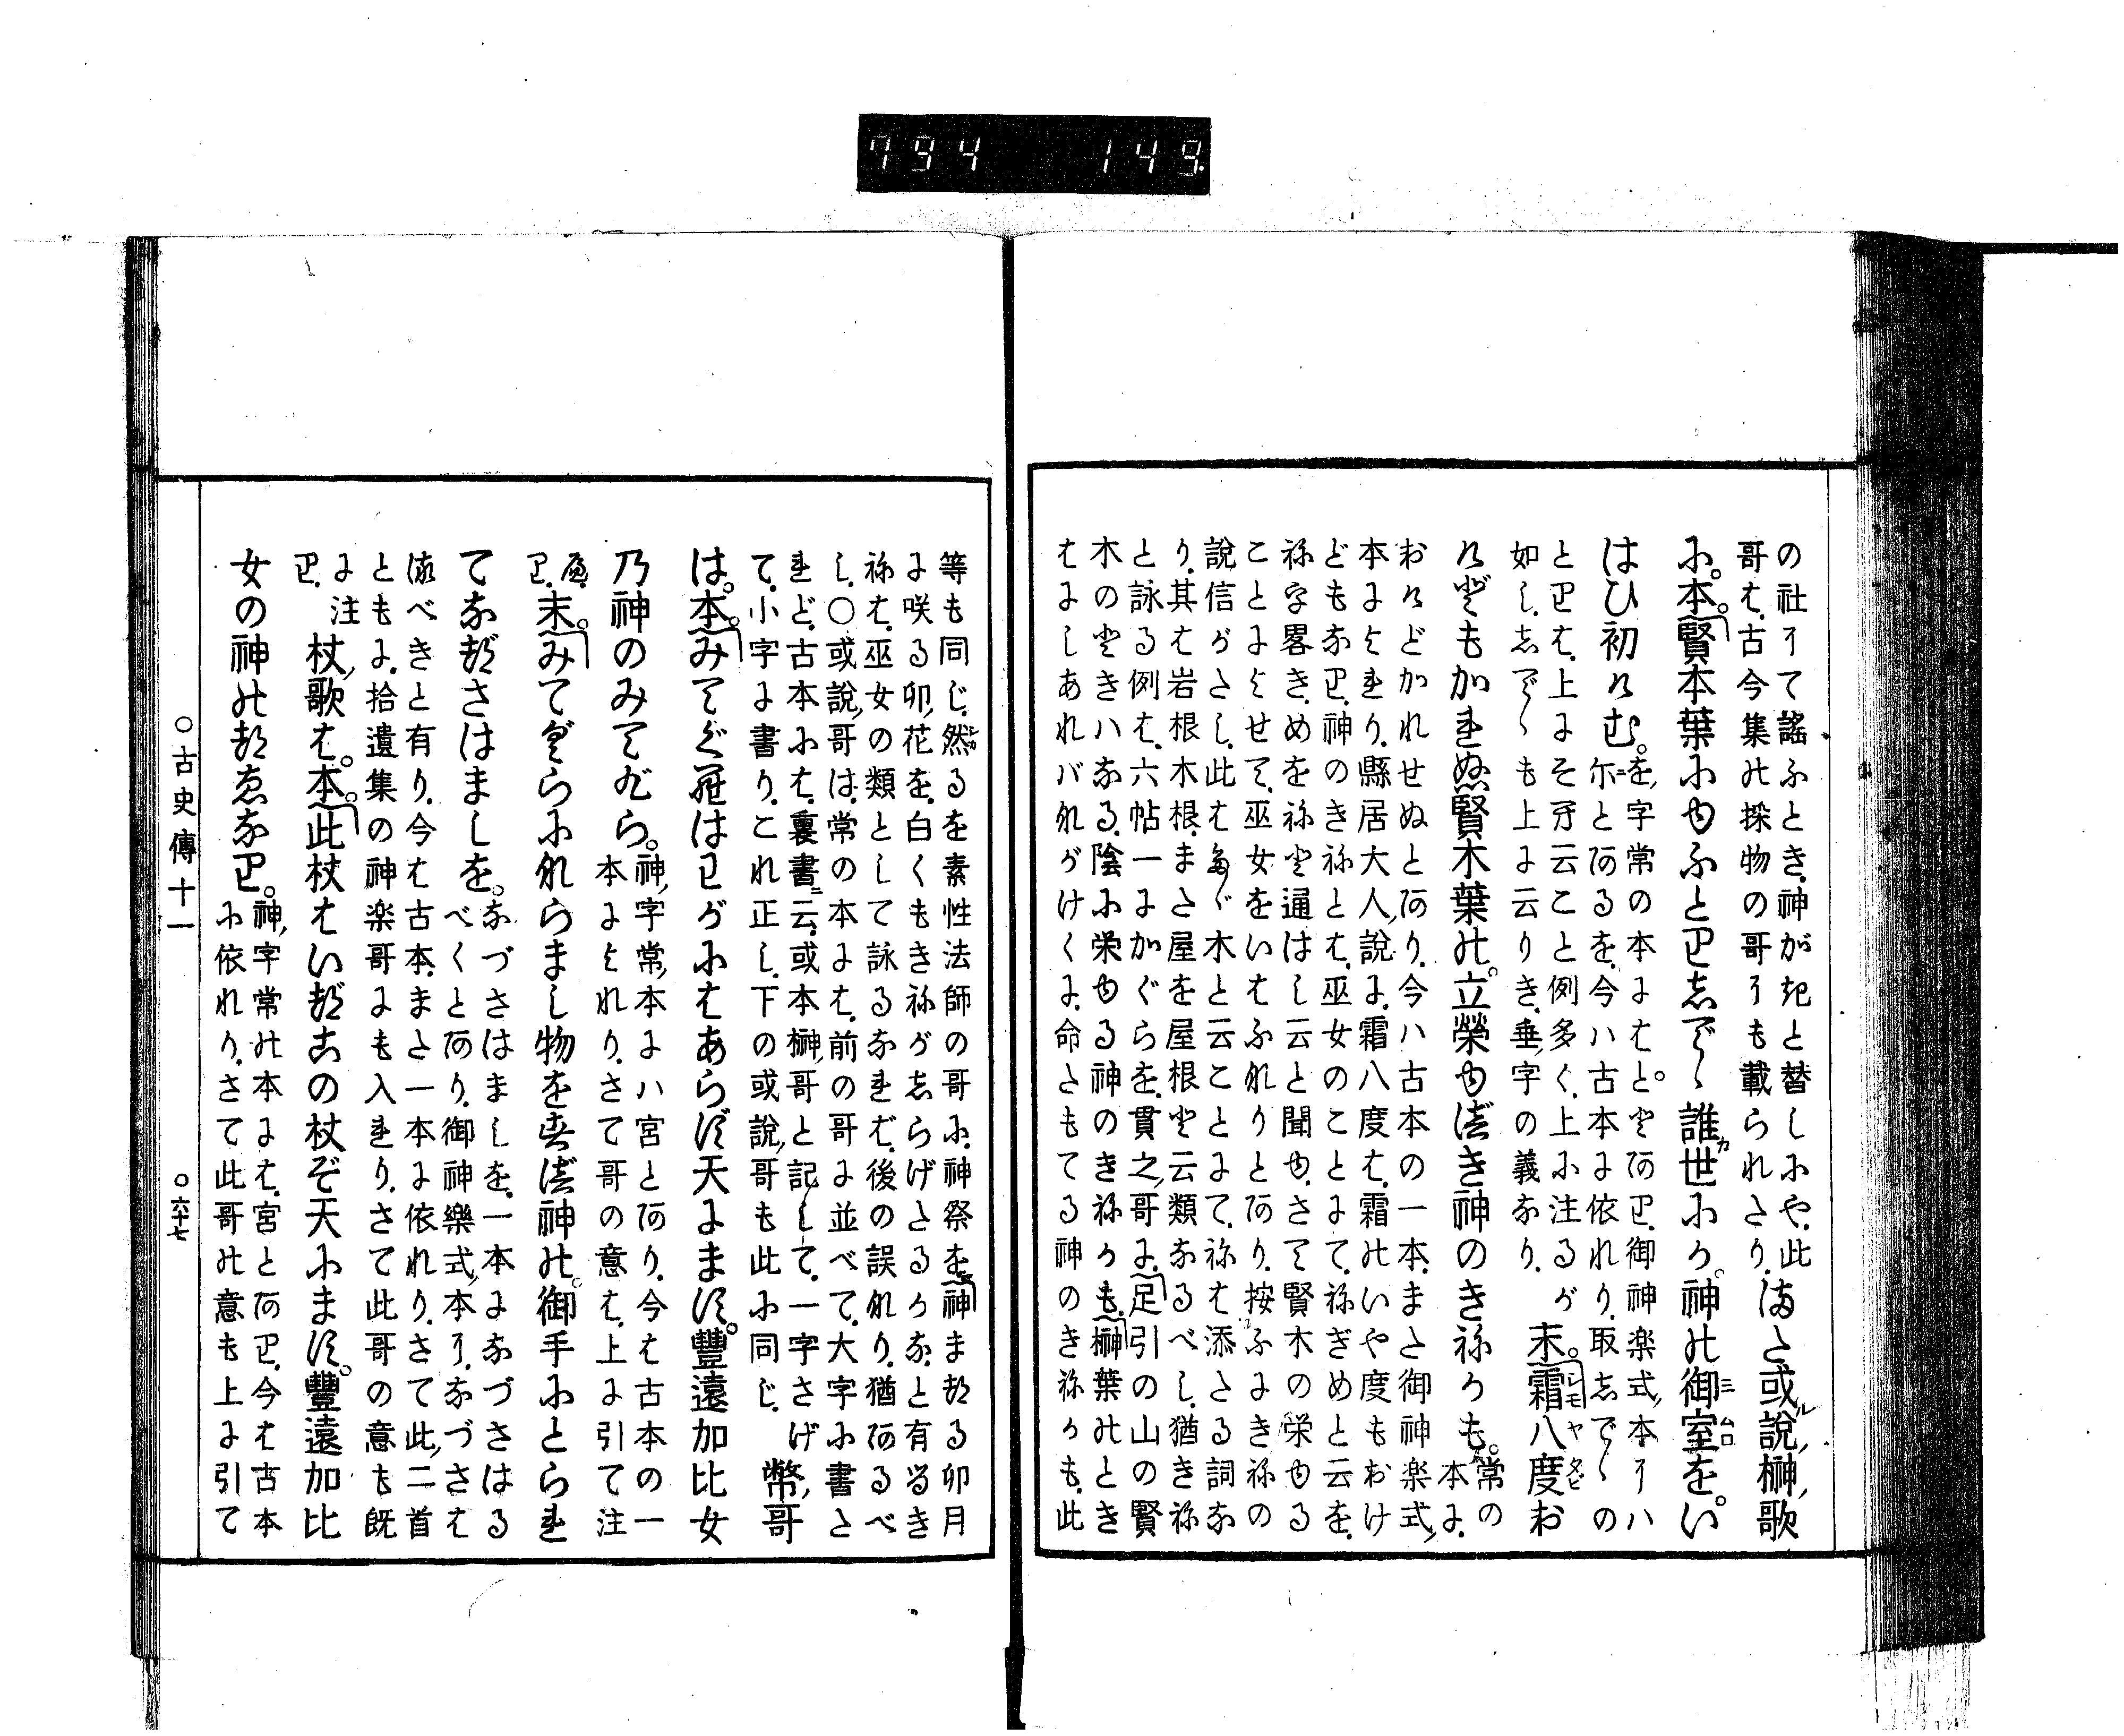 794 149
の社にて謠ふとき、神がきと替しにや、此
哥は、古今集の採物の哥にも載られたり、
また或説、榊、歌
に。本。賢木葉にゆふとりしでゝ誰世にか。神の御室をい
はひ初けむ。
を、字常の本には、と。とあり、御神楽式、本にハ
尓とあるを、今ハ古本に依れり、取しでゝの
とりは、上にそ牙云こと例多く、上に注るが
如し、しでゝも上に云りき、垂、字の義なり、
末。霜八度お
けどもかれぬ賢木葉の。立榮ゆべき神のきねかも。
常の
本に、
おけどかれせぬとあり、今ハ古本の一本、また御神楽式、
本によれり、縣居大人、說に、霜八度は、霜のいや度もおけ
どもなり、神のきねとは、巫女のことにて、ねぎめと云を、
ね字畧き、めをねと通はし云と聞ゆ、さて賢木の栄ゆる
ことによせて、巫女をいはふれりとあり、按ふにきねの
說信がたし、此はたゞ木と云ことにて、ねは添たる詞な
り、其は岩根木根、また屋を屋根と云類なるべし、猶きね
と詠る例は、六帖一にかぐらを、貫之、哥に、足引の山の賢
木のときハなる、陰に栄ゆる神のきねかも、榊葉のとき
はにしあれバながけくに、命たもてる神のきねかも、此
等も同じ、然るを素性法師の哥に、神祭を、神まつる卯月
に咲る卯、花を、白くもきねがしらげたるかな、と有るき
ねは、巫女の類として詠るなれど、後の誤なり、猶あるべ
し、○或說、哥は、常の本には、前の哥に並べて、大字に書た
れど、古本には、裏書ニ云、或本榊、哥と記して、一字さげ
て、小字に書り、これ正し、下の或說、哥も此に同じ、
幣、哥
は。本。みてぐらはわがにはあらず天にます。豐遠加比女
乃神のみてぐら。
神、字常、本にハ宮とあり、今は古本の一
本によれり、さて哥の意は、上に引て注
り、
末。みてぐらにならまし物をすべ神の。御手にとられ
てなづさはましを。
なづさはましを、一本になづさはる
べくとあり、御神樂式、本に、なづさは
るべきと有り、今は古本、また一本に依れり、さて此、二首
ともに、拾遺集の神楽哥にも入れり、さて此哥の意も既
に注
り、
杖、歌は。本。此杖はいづこの杖ぞ天にます。豐遠加比
女の神のつゑなり。
神、字常の本には、宮とあり、今は古本
に依れり、さて此哥の意も上に引て
○古史傳十一 ○六十七